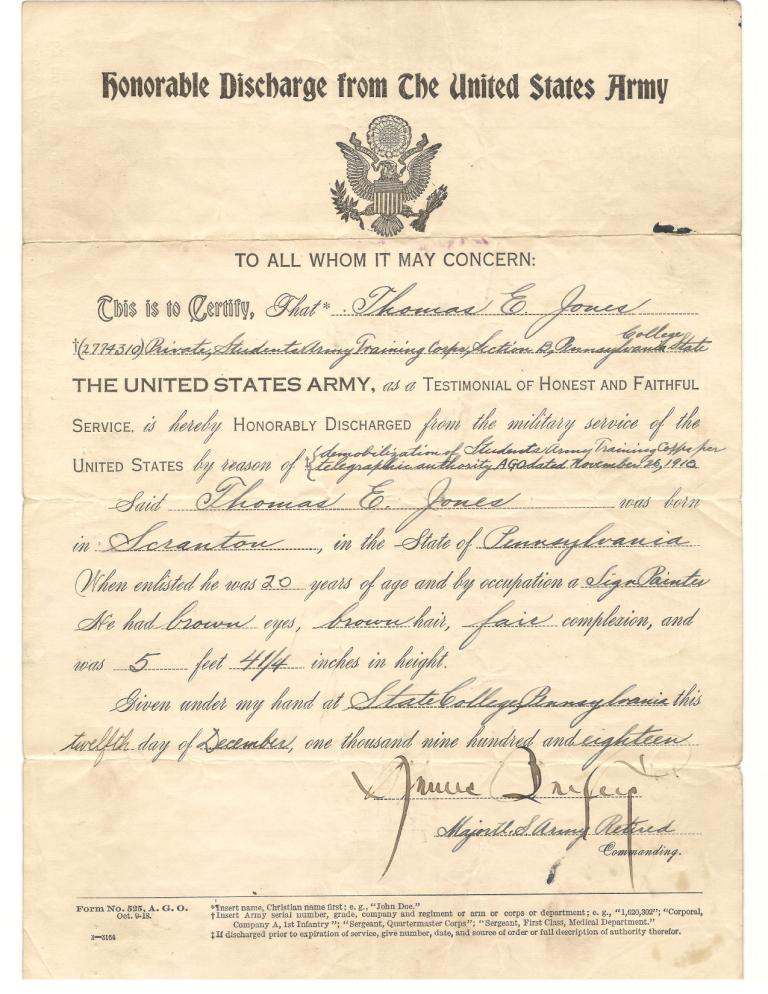 Honorable Discharge from The United States Army
TO ALL WHOM IT MAY CONCERN:
This is to Certify, That* Thomas E. Jones
College
†(2774310) Private, Students Army Training Corps, Section B, Pennsylvania State
THE UNITED STATES ARMY, as a TESTIMONIAL OF HONEST AND FAITHFUL
SERVICE, is hereby HONORABLY DISCHARGED from the military service of the
demobilization of Students Army Training Corps per
UNITED STATES by reason of ‡ telegraphic authority AGO dated November 26, 1918
Said Thomas E. Jones was born
in Scranton, in the State of Pennsylvania
When enlisted he was 20 years of age and by occupation a Sign Painter
He had brown eyes, brown hair, fair complexion, and
was 5 feet 4 1/4 inches in height.
Given under my hand at State College, Pennsylvania this
twelfth day of December, one thousand nine hundred and eighteen
Major U. S. Army Retired
Commanding.
Form No. 525, A. G. O.
Oct. 9-18.
3—3164
*Insert name, Christian name first; e. g., "John Doe."
†Insert Army serial number, grade, company and regiment or arm or corps or department; e. g., "1,620,302"; "Corporal,
Company A, 1st Infantry"; "Sergeant, Quartermaster Corps"; "Sergeant, First Class, Medical Department."
‡If discharged prior to expiration of service, give number, date, and source of order or full description of authority therefor.